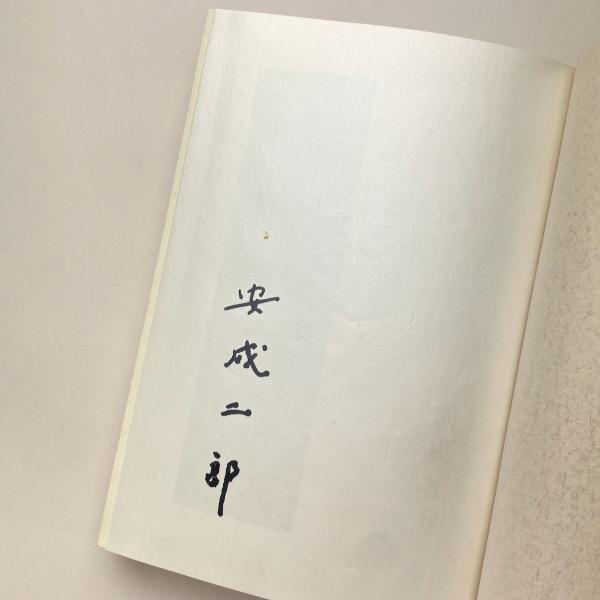 安成二郎